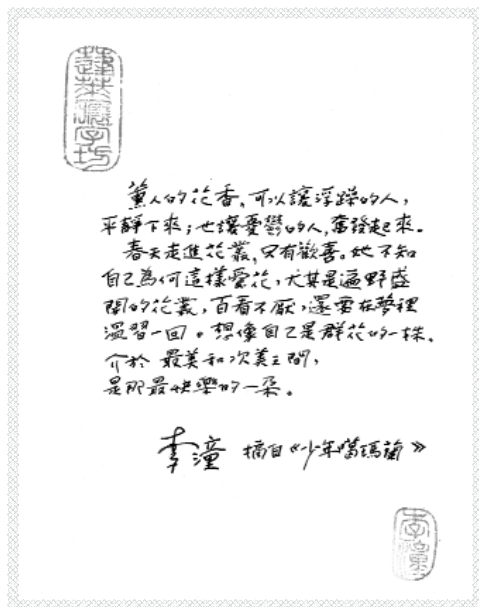 薰人的花香，可以讓浮躁的人，
平靜下來；也讓憂鬱的人，奮發起來。
春天走進花叢，只有歡喜。她不知
自己為何這樣愛花，尤其是遍野盛
開的花叢，百看不厭，還要在夢裡
溫習一回。想像自己是群花的一株，
介於最美和次美之間，
是那最快樂的一朵。
李潼 摘自《少年噶瑪蘭》
李潼